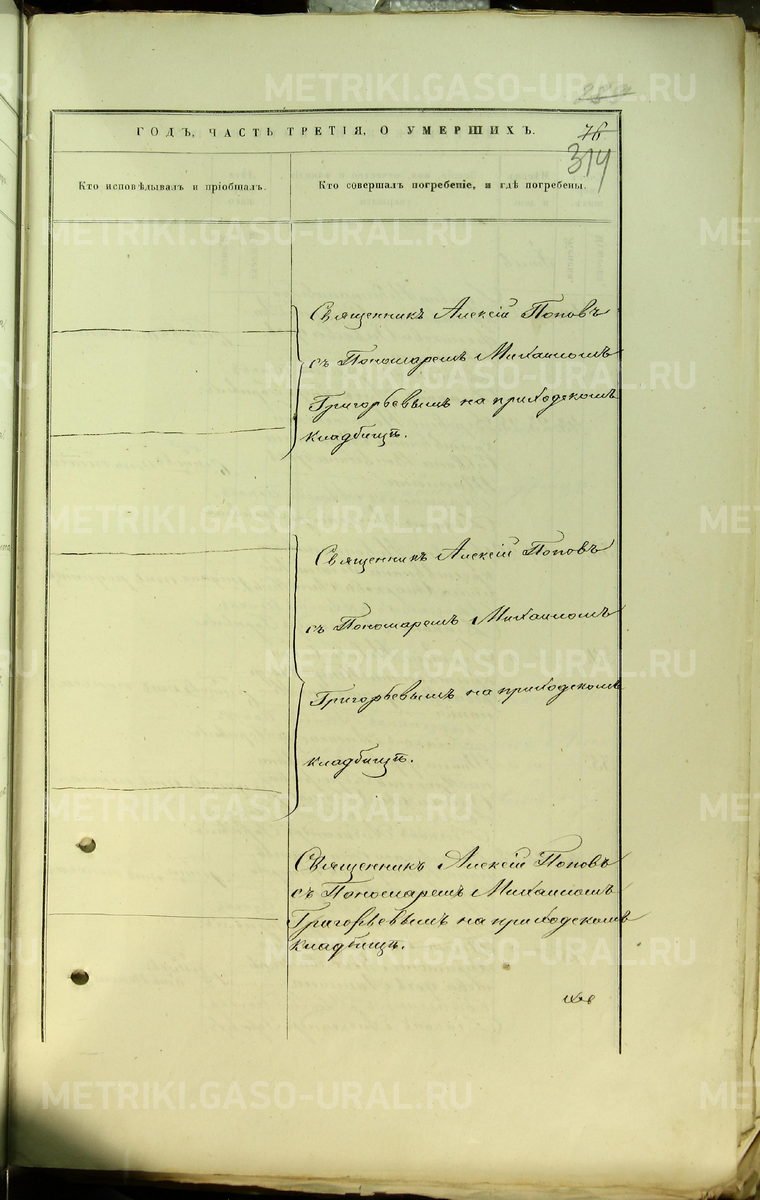 METRIKI.GASO-URAL.RU
ГОДЪ, ЧАСТЬ ТРЕТІЯ, О УМЕРШИХЪ.
76
314
Кто исповѣдывалъ и пріобщалъ.
Кто совершалъ погребеніе, и гдѣ погребены.
Священникъ Алексій Поповъ
съ Пономаремъ Михаиломъ
Григорьевымъ на приходскомъ
кладбищѣ.
Священникъ Алексій Поповъ
съ Пономаремъ Михаиломъ
Григорьевымъ на приходскомъ
кладбищѣ.
Священникъ Алексій Поповъ
съ Пономаремъ Михаиломъ
Григорьевымъ на приходскомъ
кладбищѣ.